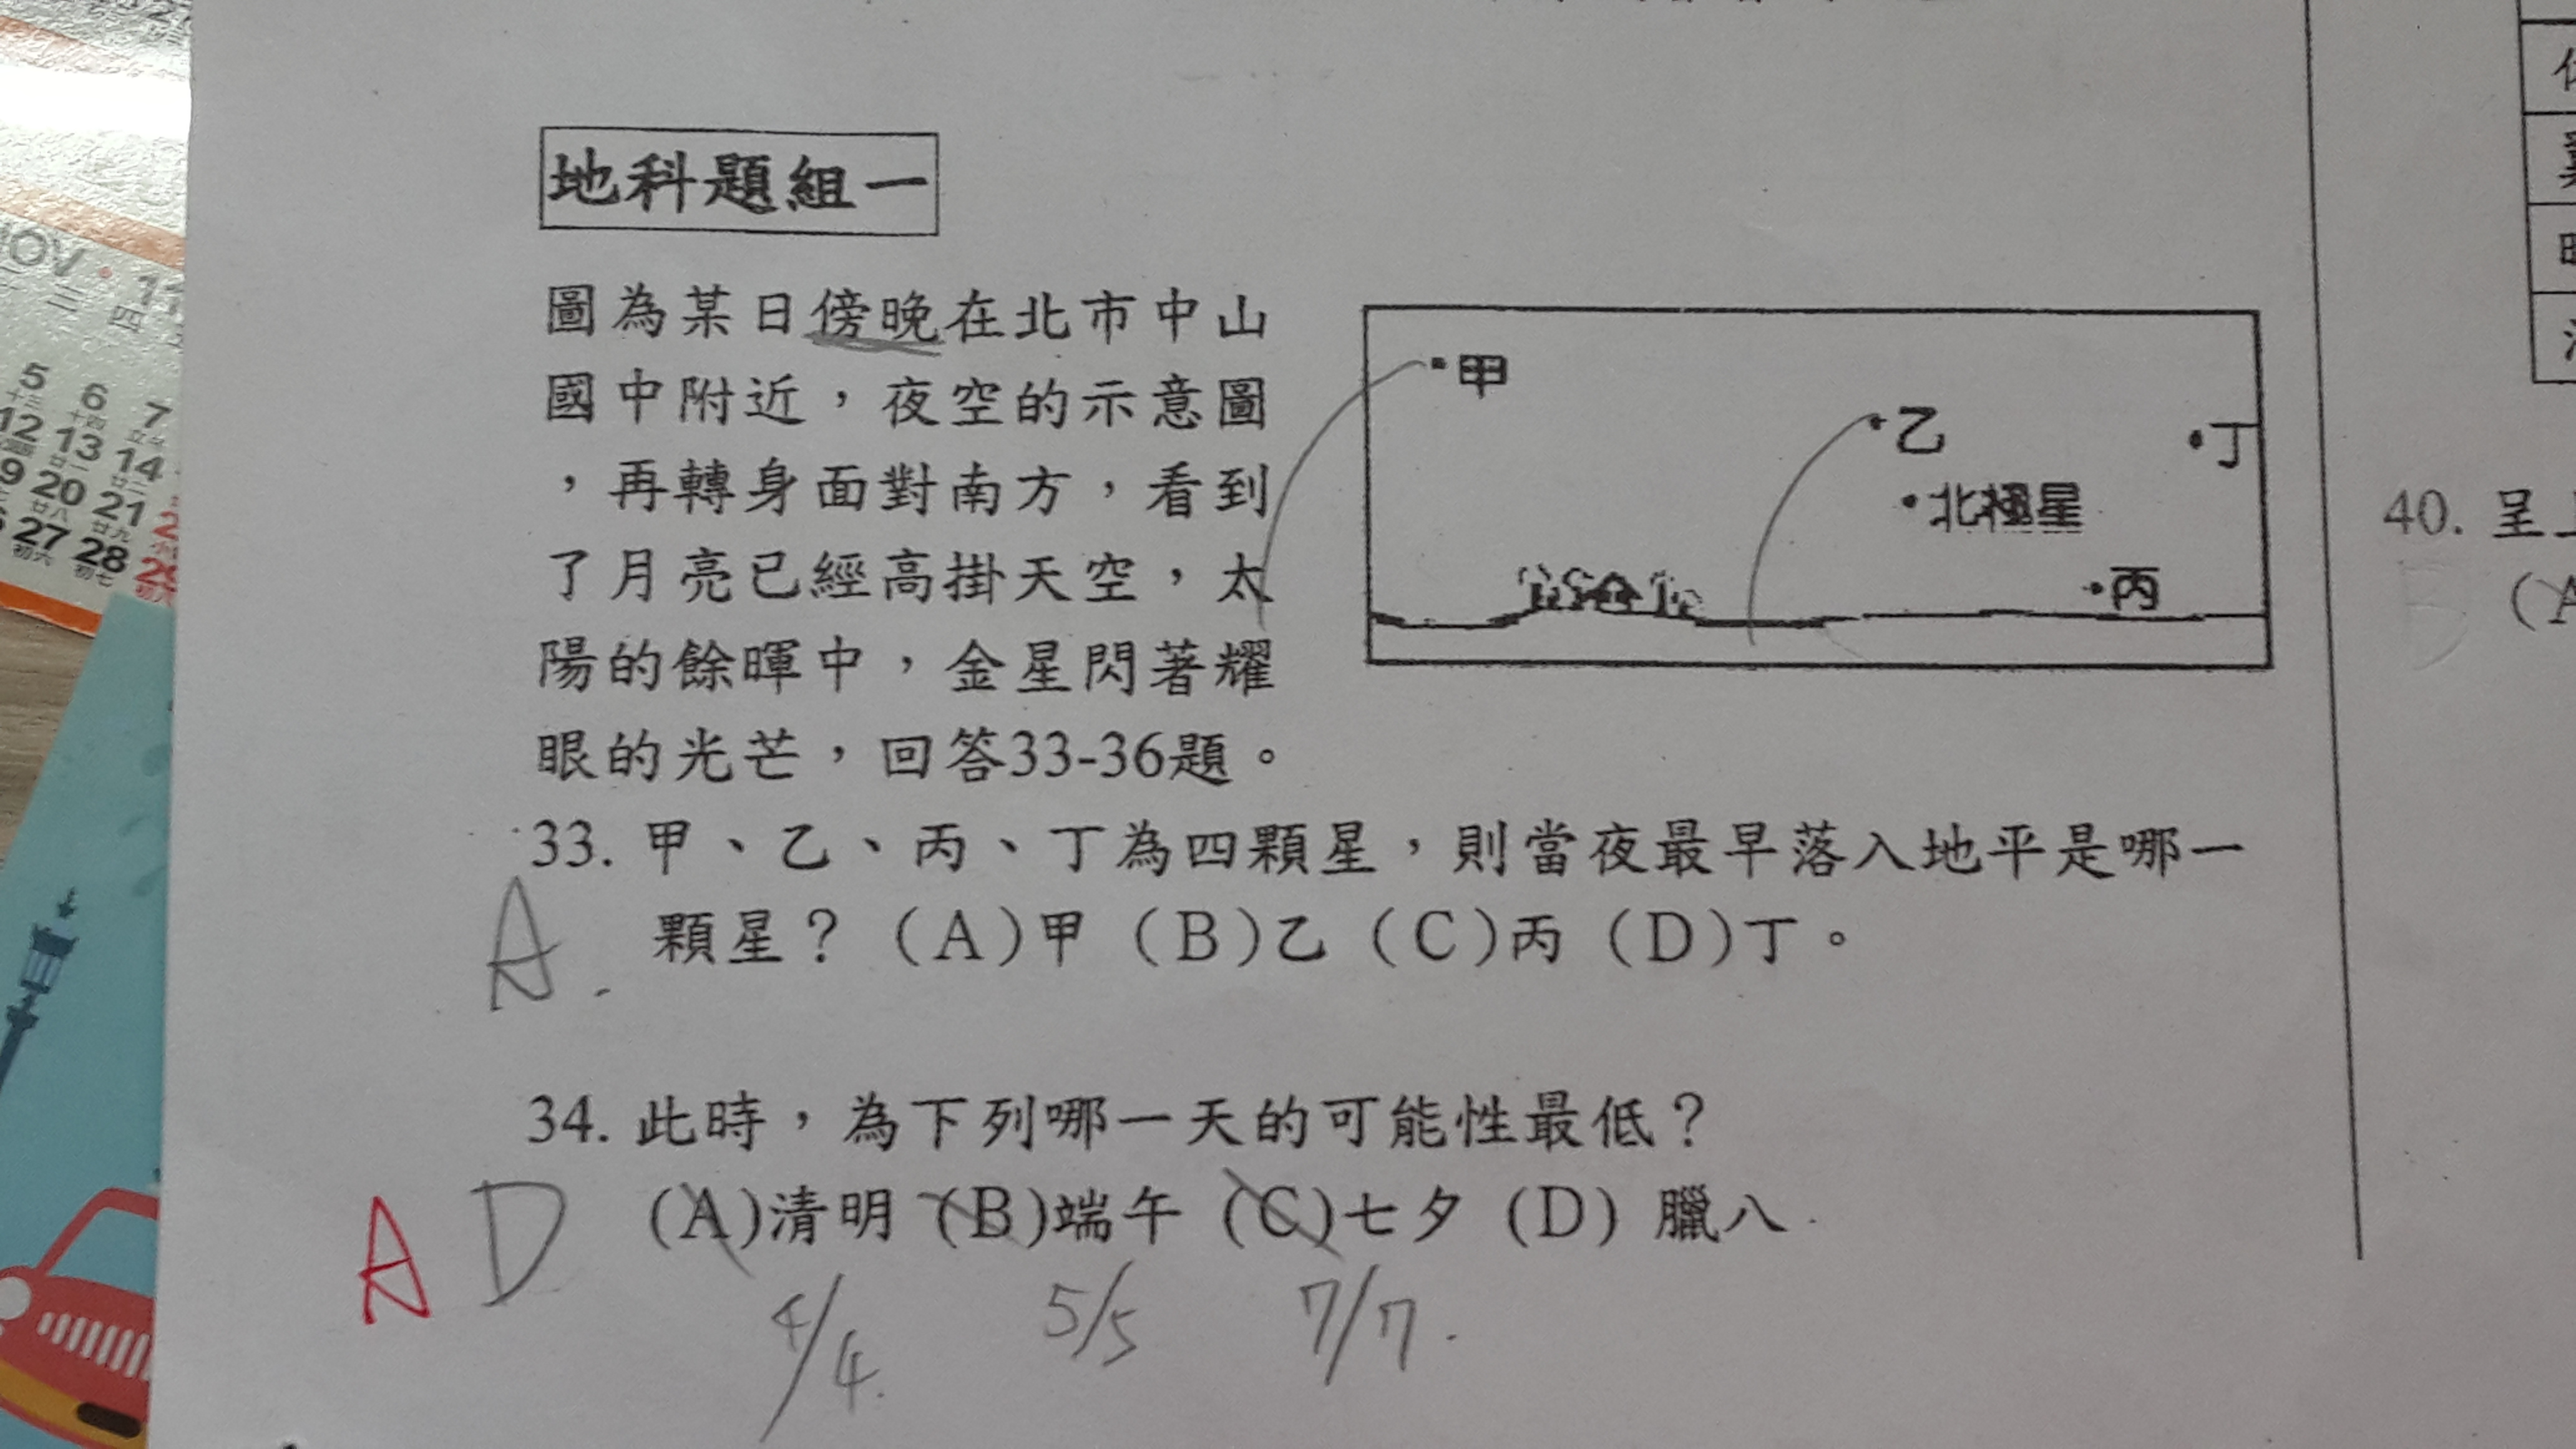 地科題組一
圖為某日傍晚在北市中山
國中附近，夜空的示意圖
，再轉身面對南方，看到
了月亮已經高掛天空，太
陽的餘暉中，金星閃著耀
眼的光芒，回答33-36題。
甲
乙
丁
北極星
丙
33. 甲、乙、丙、丁為四顆星，則當夜最早落入地平是哪一
顆星？（A）甲（B）乙（C）丙（D）丁。
A.
34. 此時，為下列哪一天的可能性最低？
(A)清明 (B)端午 (C)七夕 (D) 臘八
A D
4/4. 5/5 7/7.
40. 呈
(A
NOV 11
二 三 四
5 6 7
12 13 14
9 20 21
27 28 29
初六 初七